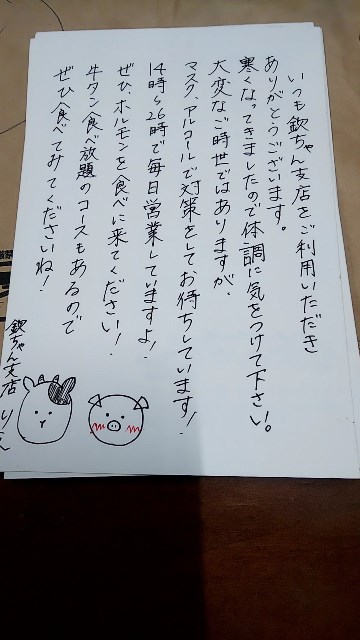 いつも欽ちゃん支店をご利用いただき
ありがとうございます。
寒くなってきましたので体調に気をつけて下さい。
大変なご時世ではありますが、
マスク、アルコールで対策をしてお待ちしています!
14時〜26時で毎日営業していますよ!
ぜひ、ホルモンを食べに来てください!
牛タン食べ放題のコースもあるので
ぜひ食べてみてくださいね!
欽ちゃん支店 りえ